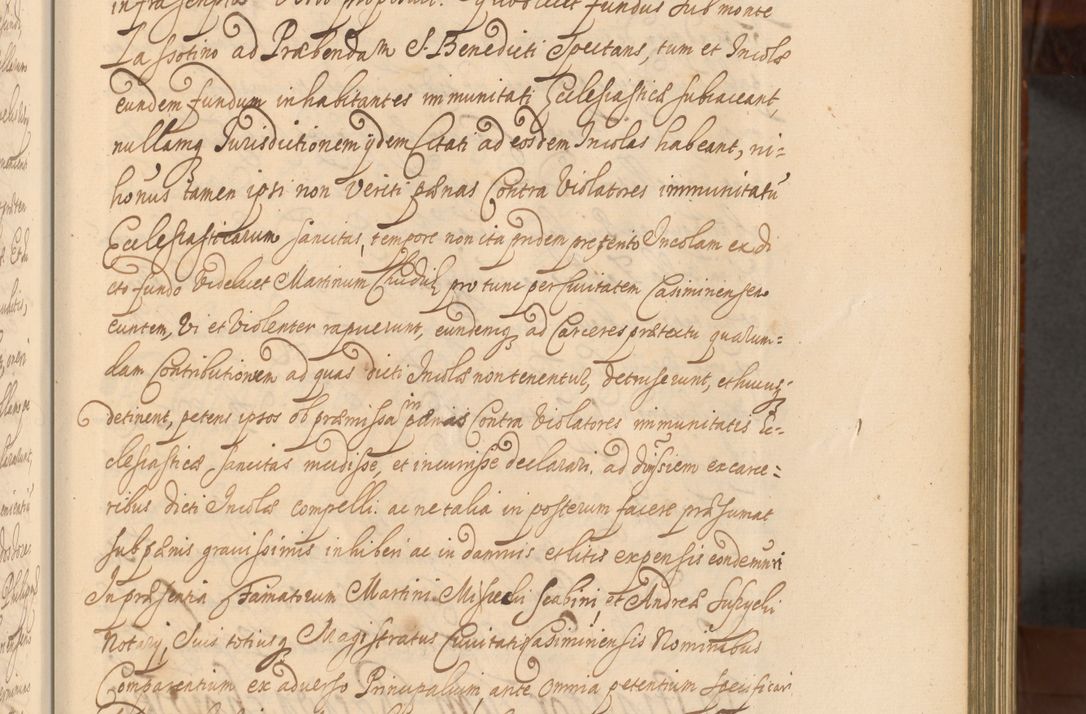 infrascriptos Verso proposuit. Quod licet fundus sub monte
Lassotino ad Præbendam S. Benedicti Spectans, tum et Incolæ
eundem fundum inhabitantes immunitati Ecclesiasticæ subiaceant,
nullamq Iurisdictionem ijdem Citati ad eosdem Incolas habeant, ni=
honus tamen ipsi non Veriti pænas Contra Violatores immunitatũ
Ecclesiasticarum sancitas, tempore non ita pridem præterito Incolam ex di
cto fundo Videlicet Martinum pro tunc per Civitatem Casimirensem
euntem, Vi et Violenter rapuerunt, eundemq ad Carceres prætextu quarum=
dam Contributionem ad quas dicti Incolæ non tenentur, detruserunt, et hucusq
detinent, petens ipsos ob præmissa in pænas Contra Violatores immunitatis Ec=
clesiasticæ sancitas incidisse, et incurrisse declarari. ad dimissiem ex carce=
ribus dicti Incolæ compelli. ac ne talia in posterum facere præsumat
sub pænis gravissimis inhiberi ac in damnis et litis expensis condemnri
In præsentia Famatorum Martini Scabini, et Andreæ
Notarij, Suis totiusq Magistratus Civitatis Casimirensis Nominibus
Comparentium ex adverso Principalium, ante omnia petentium specificari